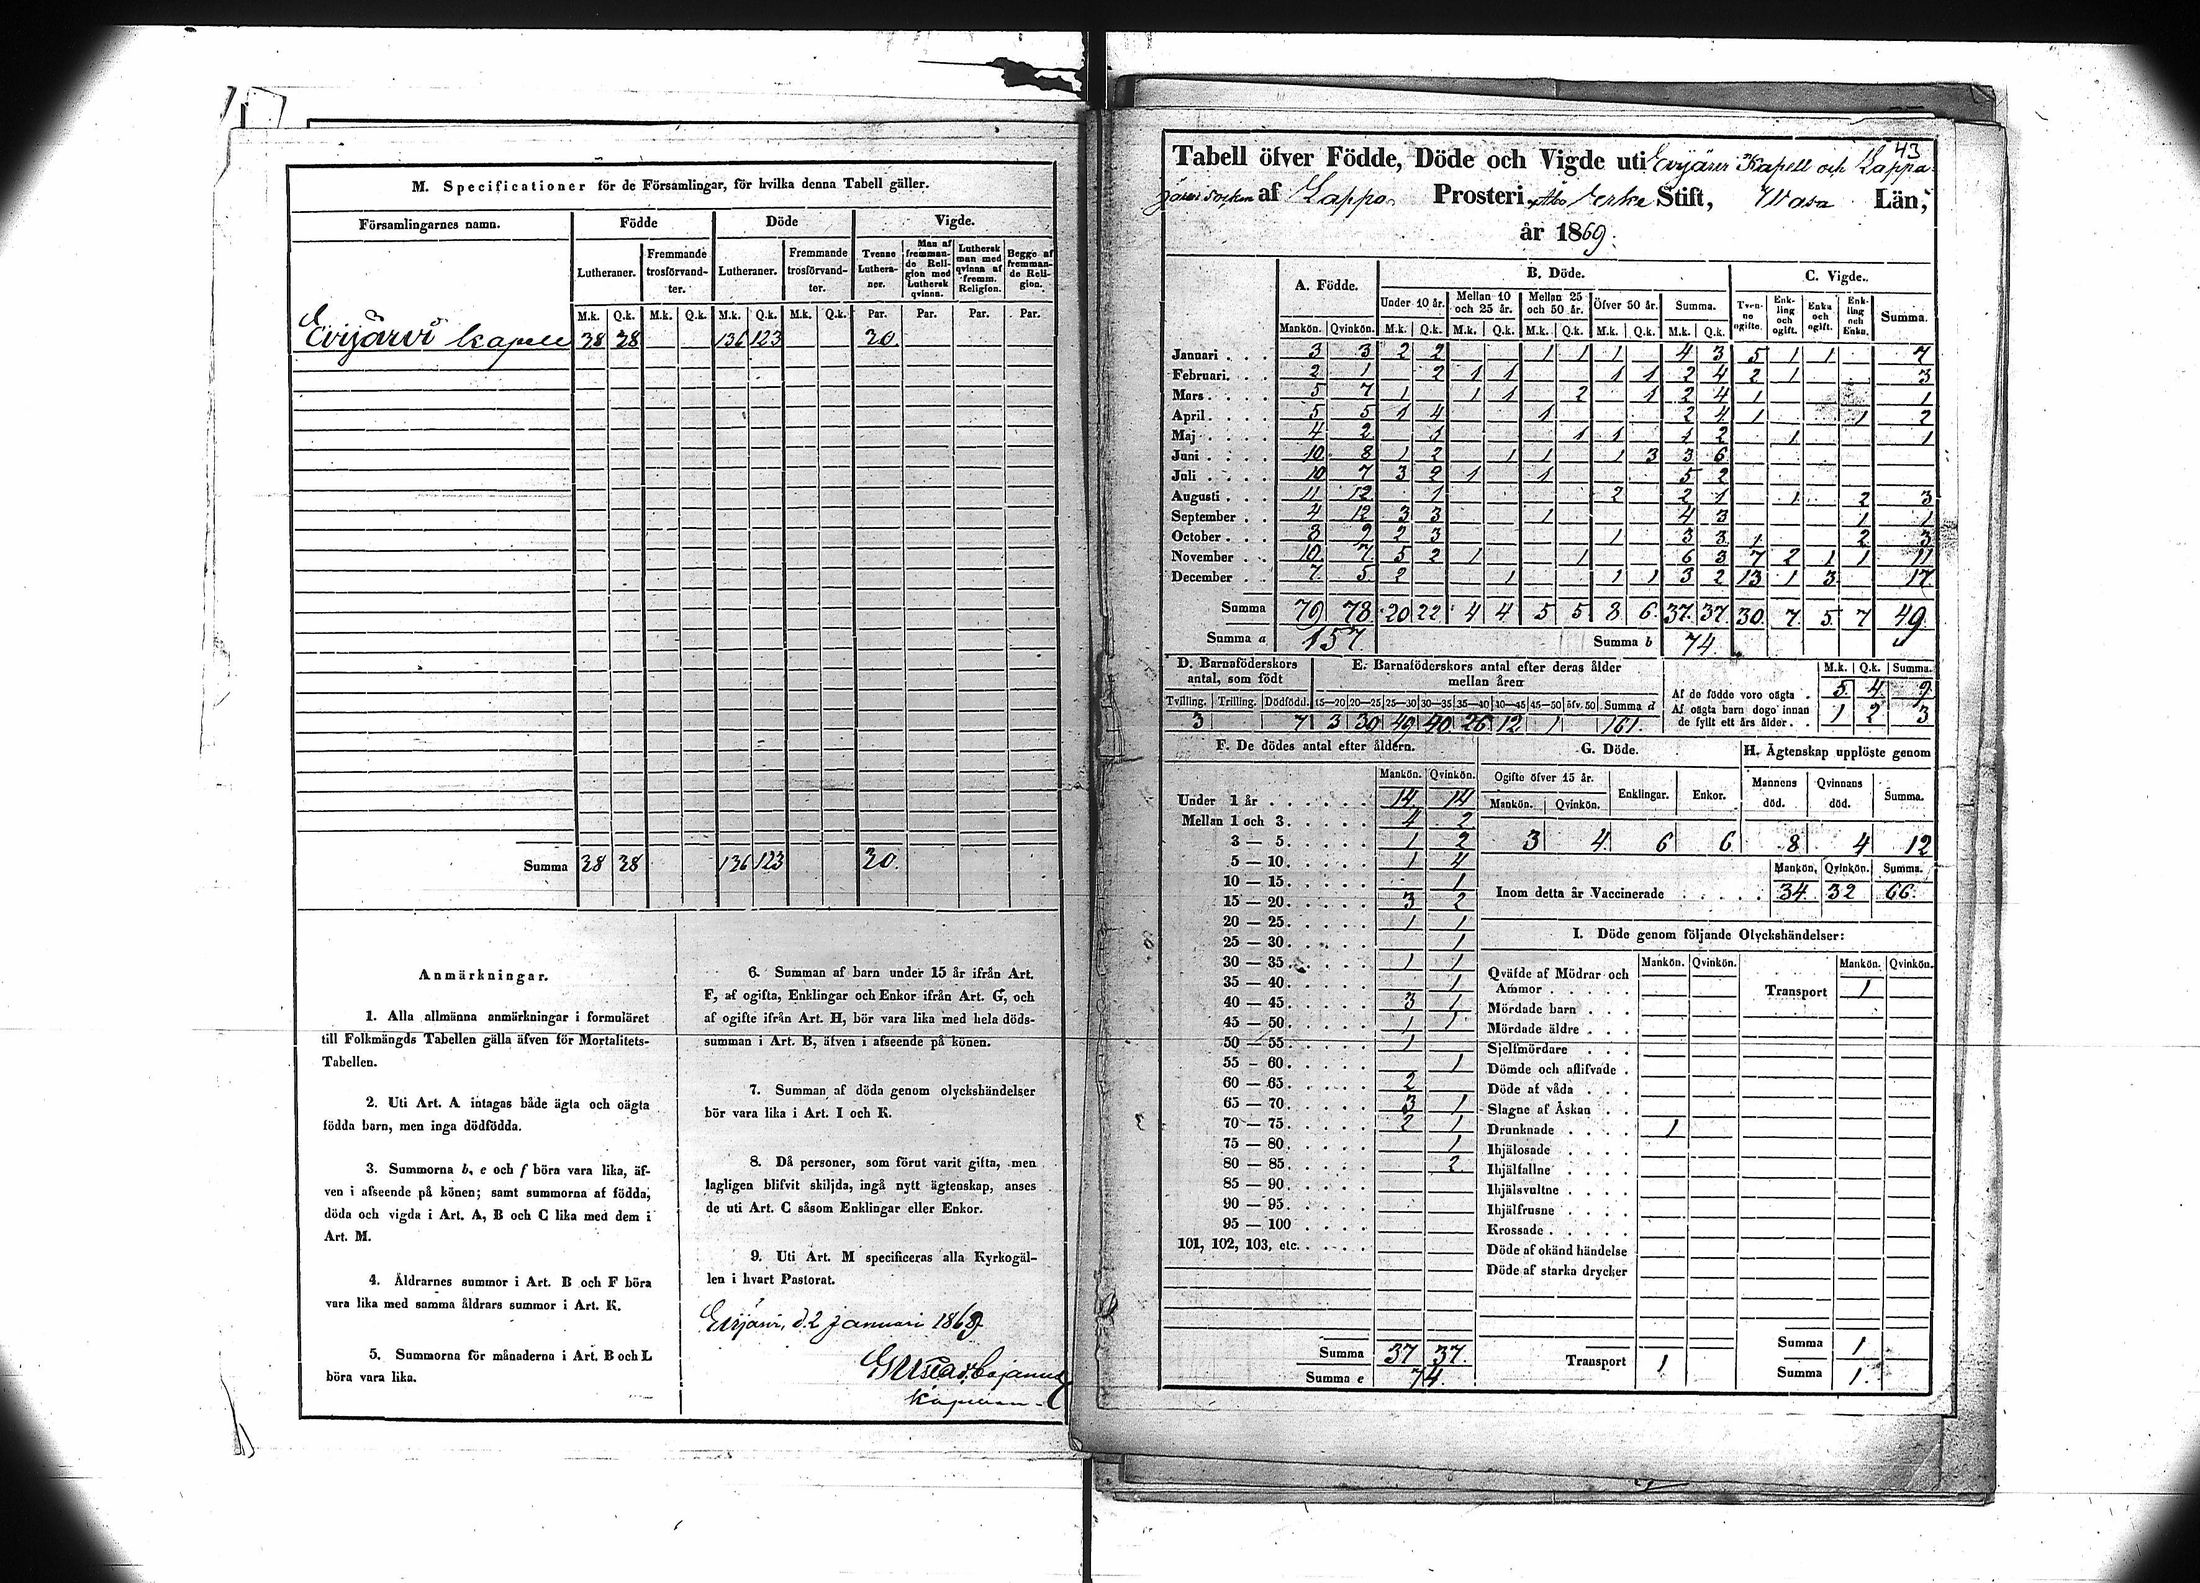 M. Specificationer för de Församlingar, för hvilka denna Tabell gäller.
Församlingarnes namn. Födde Döde Vigde.
Lutheraner. Fremmande trosförvandter. Lutheraner. Fremmande trosförvandter. Tvenne Lutheraner. Man af fremmande Religion med Luthersk qvinna. Luthersk man med qvinna af fremm. Religion. Begge af fremmande Religion.
M.k. Q.k. M.k. Q.k. M.k. Q.k. M.k. Q.k. Par. Par. Par. Par.
Evijärvi kapell 38 38 136 123 20
Summa 38 38 136 123 20.
Anmärkningar.
1. Alla allmänna anmärkningar i formuläret
till Folkmängds Tabellen gälla äfven för Mortalitets-
Tabellen.
2. Uti Art. A intagas både ägta och oägta
födda barn, men inga dödfödda.
3. Summorna b, e och f böra vara lika, äf-
ven i afseende på könen; samt summorna af födda,
döda och vigda i Art. A, B och C lika med dem i
Art. M.
4. Åldrarnes summor i Art. B och F böra
vara lika med samma åldrars summor i Art. K.
5. Summorna för månaderna i Art. B och L
böra vara lika.
6. Summan af barn under 15 år ifrån Art.
F, af ogifta, Enklingar och Enkor ifrån Art. G, och
af ogifte ifrån Art. H, bör vara lika med hela döds-
summan i Art. B, äfven i afseende på könen.
7. Summan af döda genom olyckshändelser
bör vara lika i Art. I och K.
8. Då personer, som förut varit gifta, men
lagligen blifvit skiljda, ingå nytt ägtenskap, anses
de uti Art. C såsom Enklingar eller Enkor.
9. Uti Art. M specificeras alla Kyrkogäl-
len i hvart Pastorat.
Evijärvi, d. 2 Januari 1869.
Gustav Cajanus
Kapellan
43
Tabell öfver Födde, Döde och Vigde uti Evijärvi Kapell och Lappa-
järvi Socken af Lappo Prosteri, Åbo Erke Stift, Wasa Län,
år 1869.
A. Födde. B. Döde. C. Vigde.
Under 10 år. Mellan 10 och 25 år. Mellan 25 och 50 år. Öfver 50 år. Summa. Tvenne ogifte. Enkling och ogift. Enka och ogift. Enkling och Enka. Summa.
Mankön. Qvinkön. M.k. Q.k. M.k. Q.k. M.k. Q.k. M.k. Q.k. M.k. Q.k.
Januari 3 3 2 2 1 1 1 4 3 5 1 1 7
Februari 2 1 2 1 1 1 1 2 4 2 1 3
Mars 5 7 1 1 1 2 1 2 4 1 1
April 5 5 1 4 1 2 4 1 1 2
Maj 4 2 1 1 1 1 2 1 1
Juni 10 8 1 2 1 1 1 3 3 6
Juli 10 7 3 2 1 1 5 2
Augusti 11 12 1 2 2 1 1 2 3
September 4 12 3 3 1 4 3 1 1
October 8 9 2 3 1 3 3 1 2 3
November 10 7 5 2 1 1 6 3 7 2 1 1 11
December 7 5 2 1 1 1 3 2 13 1 3 17
Summa 79 78 20 22 4 4 5 5 8 6 37 37 30 7 5 7 49
Summa a 157. Summa b 74.
D. Barnaföderskors antal, som födt
E. Barnaföderskors antal efter deras ålder mellan åren
M.k. Q.k. Summa.
Tvilling. Trilling. Dödfödd. 15—20 20—25 25—30 30—35 35—40 40—45 45—50 öfv. 50 Summa d
3 7 3 30 49 40 26 12 1 161.
Af de födde voro oägta 5 4 9
Af oägta barn dogo innan de fyllt ett års ålder 1 2 3
F. De dödes antal efter åldern.
Mankön. Qvinkön.
Under 1 år 14 14
Mellan 1 och 3 4 2
3 — 5 1 2
5 — 10 1 4
10 — 15 1
15 — 20 3 2
20 — 25 1 1
25 — 30 1
30 — 35 1 1
35 — 40 1
40 — 45 3 1
45 — 50 1 1
50 — 55 1
55 — 60 1
60 — 65 2
65 — 70 3 1
70 — 75 2 1
75 — 80 1
80 — 85 2
85 — 90
90 — 95
95 — 100
101, 102, 103, etc.
Summa 37 37.
Summa e 74.
G. Döde.
Ogifte öfver 15 år. Enklingar. Enkor.
Mankön. Qvinkön.
3 4 6 6
H. Ägtenskap upplöste genom
Mannens död. Qvinnans död. Summa.
8 4 12
Mankön. Qvinkön. Summa.
Inom detta år Vaccinerade 34 32 66.
I. Döde genom följande Olyckshändelser:
Mankön. Qvinkön. Mankön. Qvinkön.
Qväfde af Mödrar och Ammor
Transport 1
Mördade barn
Mördade äldre
Sjelfmördare
Dömde och aflifvade
Döde af våda
Slagne af Åskan
Drunknade 1
Ihjälosade
Ihjälfallne
Ihjälsvultne
Ihjälfrusne
Krossade
Döde af okänd händelse
Döde af starka drycker
Summa 1
Transport 1
Summa 1.